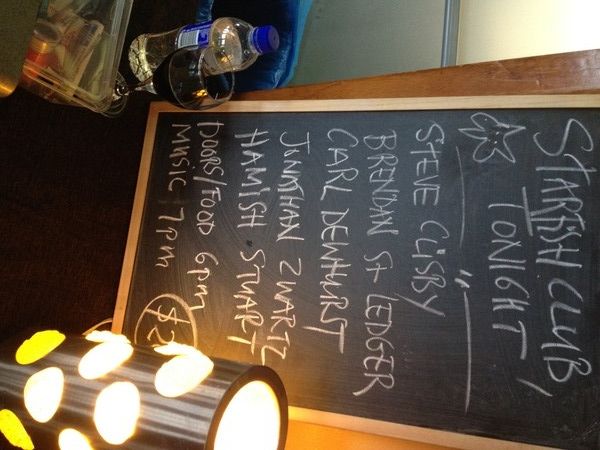 STARFISH CLUB
TONIGHT!
STEVE CLISBY
BRENDAN St LEDGER
CARL DEWHURST
JONATHAN ZWARTZ
HAMISH STUART
DOORS/FOOD 6pm
MUSIC 7pm